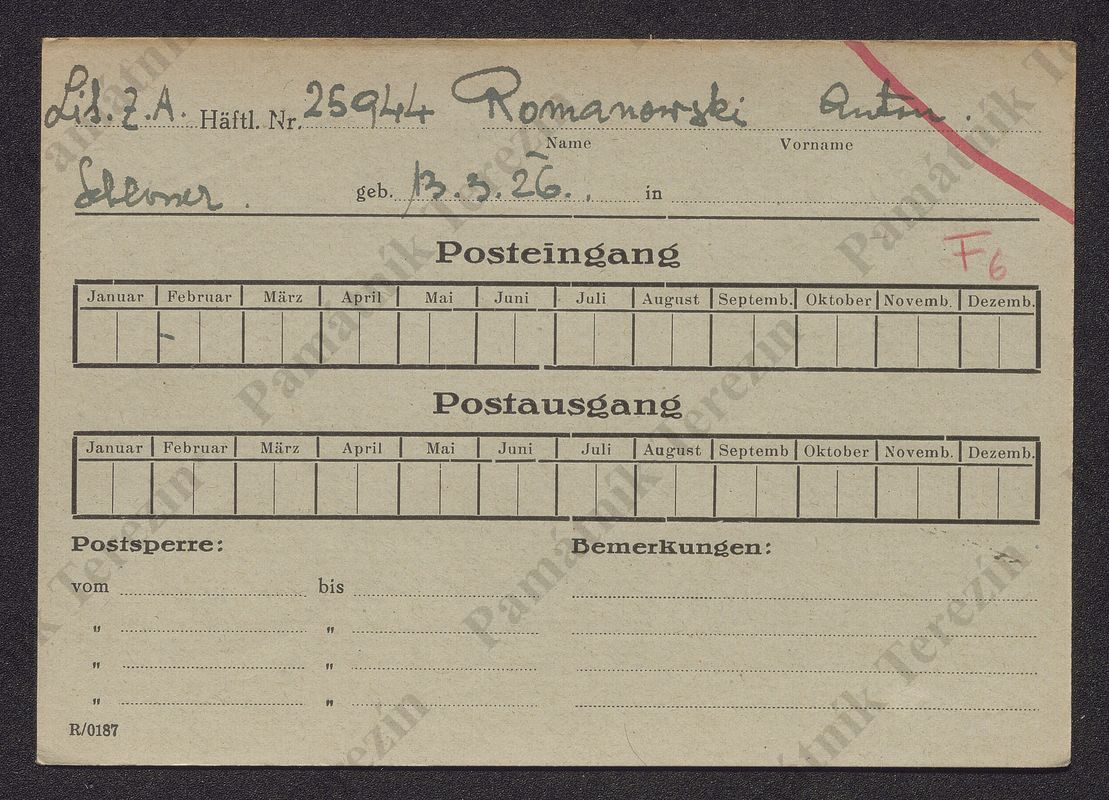 Lit. Z. A. Häftl. Nr. 25944 Romanowski Anton.
Name Vorname
geb. 13. 3. 26. in
Posteingang
F6
Januar Februar März April Mai Juni Juli August Septemb. Oktober Novemb. Dezemb.
Postausgang
Januar Februar März April Mai Juni Juli August Septemb Oktober Novemb. Dezemb.
Postsperre: Bemerkungen:
vom bis
" "
" "
" "
R/0187
Památník Terezín